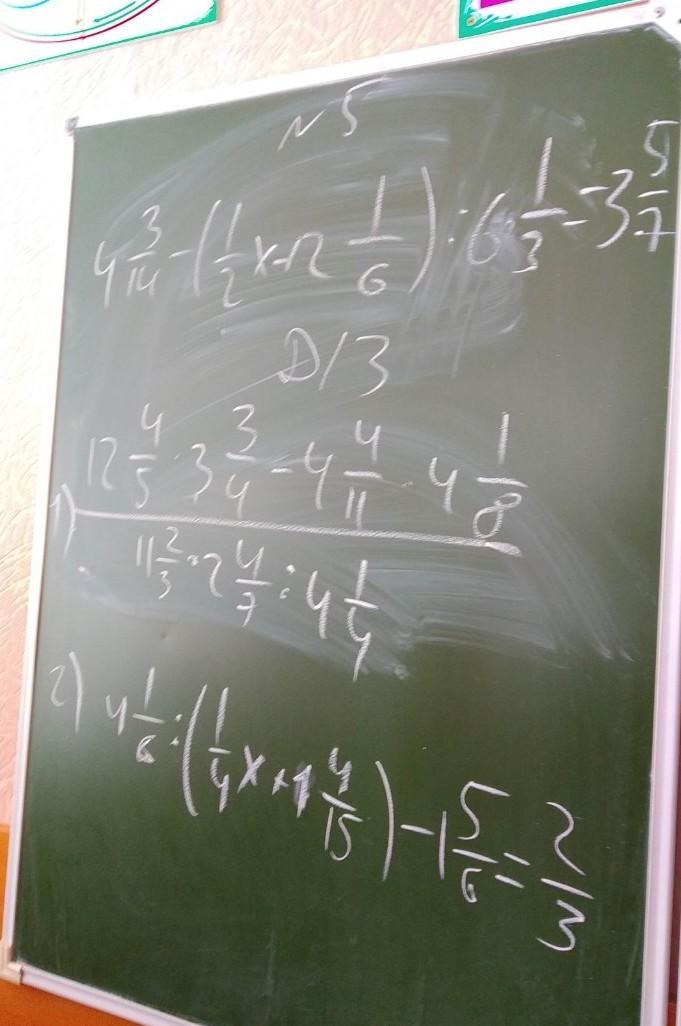 N5
4 3/14 - (1/2 x + 2 1/6) : 6 1/3 = 3 5/7
D/3
1) (12 4/5 · 3 3/4 - 4 4/11 · 4 1/8) / (11 2/3 · 2 4/7 : 4 1/4)
2) 4 1/6 : (1/4 x + 1 4/15) - 1 5/6 = 2/3